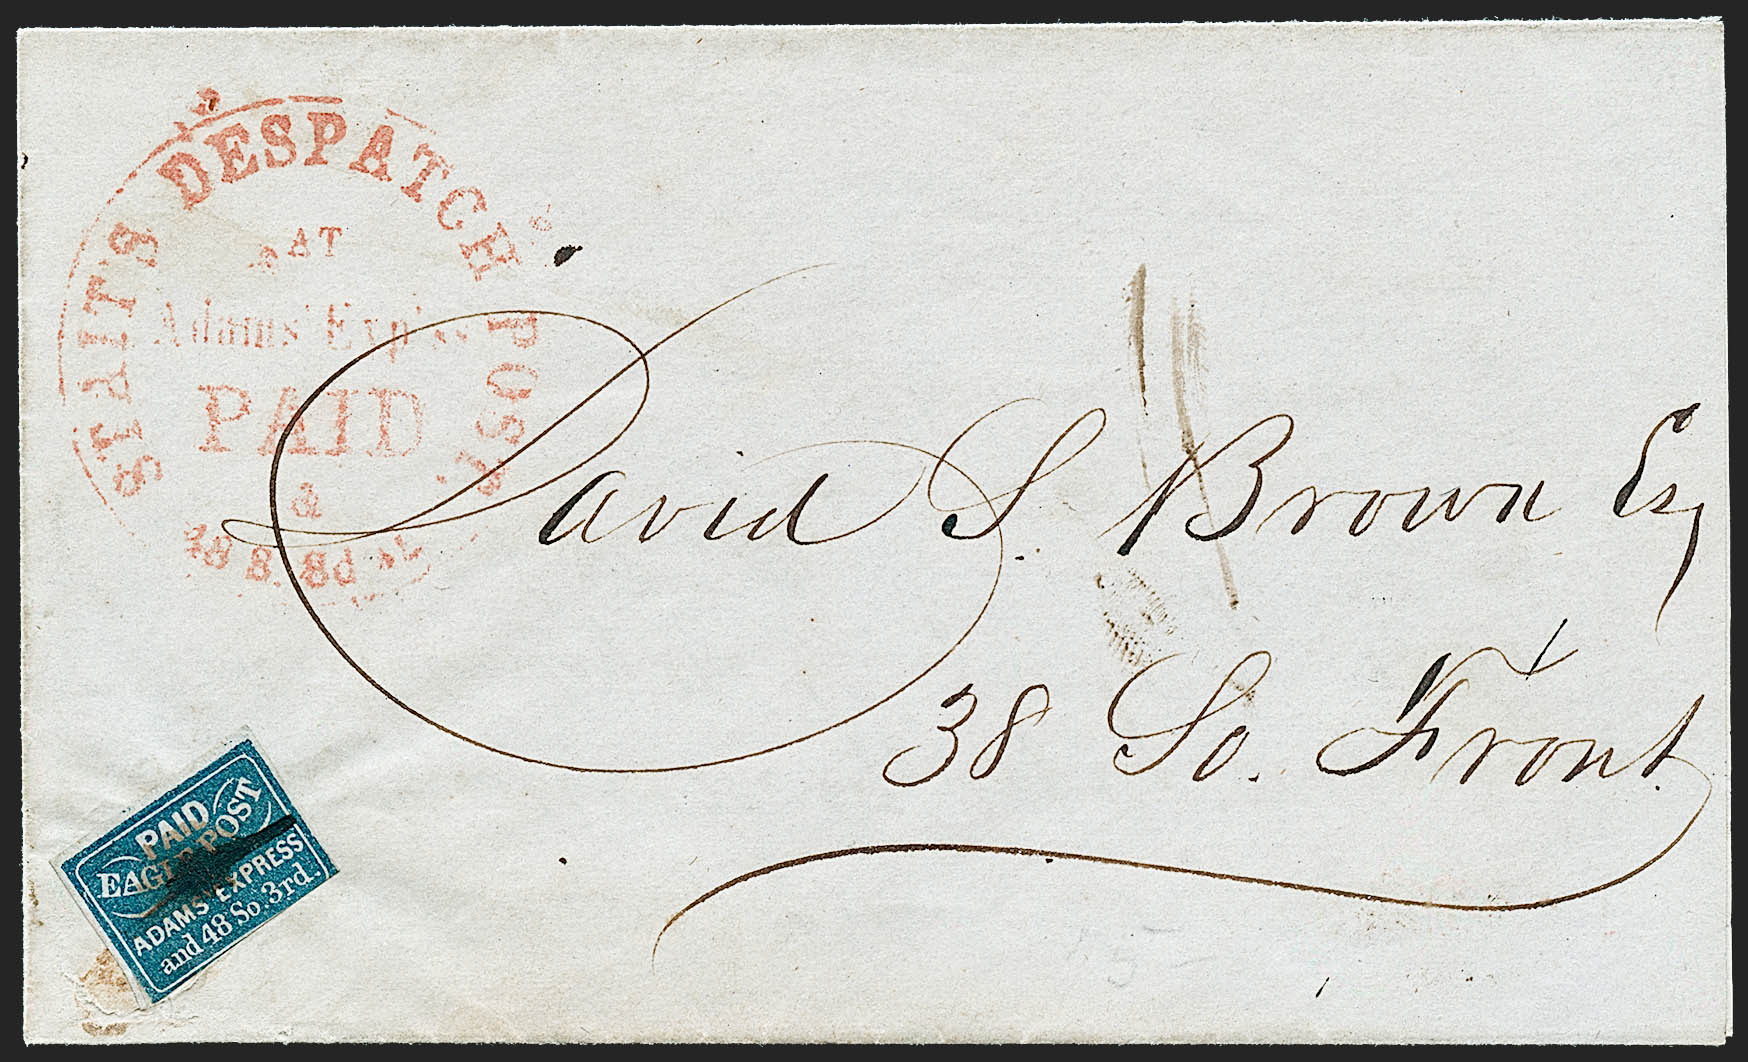 STAIT'S DESPATCH POST
AT
Adams' Express
PAID
&
48 S. 3d St.
David S. Brown Esq
38 So. Front
PAID
EAGLE POST
ADAMS' EXPRESS
and 48 So. 3rd.